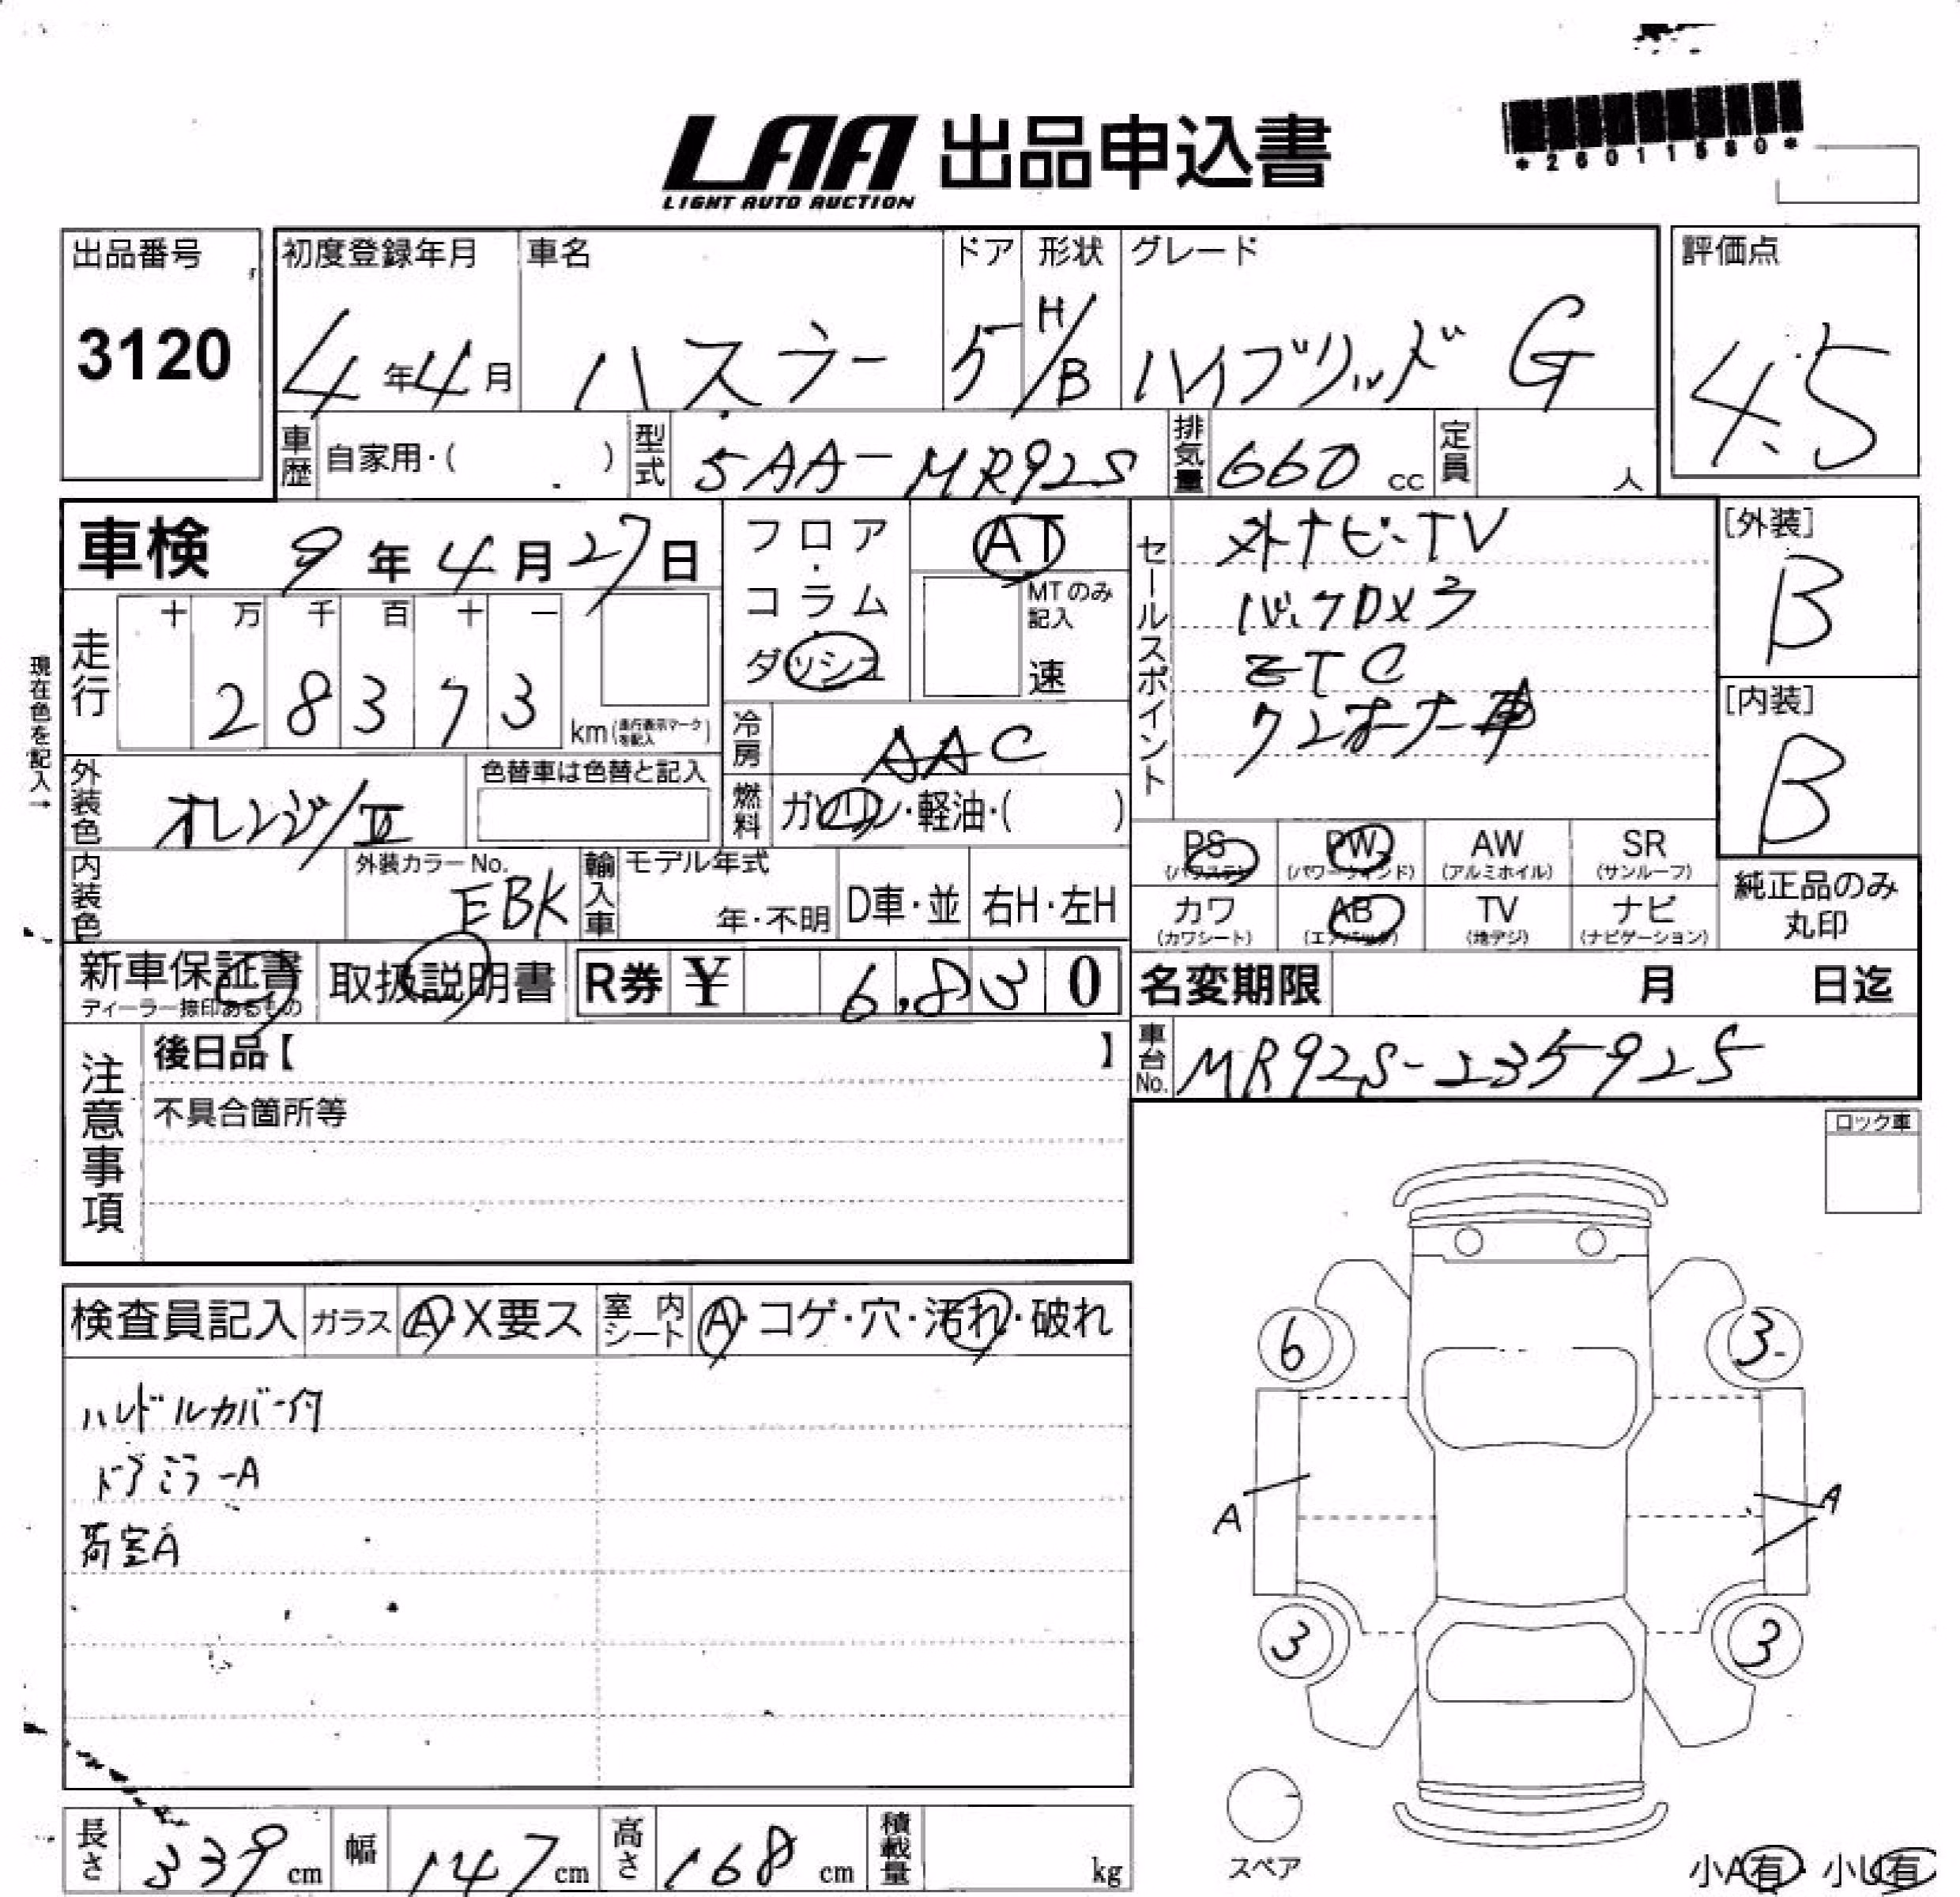 LAA 出品申込書
LIGHT AUTO AUCTION
*26011580*
出品番号
3120
初度登録年月
4年4月
車名
ハスラー
ドア
5
形状
H/B
グレード
ハイブリッド G
評価点
4.5
車歴
自家用・( )
型式
5AA-MR92S
排気量
660 cc
定員
人
車検 9年4月27日
フロア・コラム
ダッシュ
AT
MTのみ記入
速
セールスポイント
外ナビ・TV
バックカメラ
ETC
ワンオーナー車
[外装]
B
[内装]
B
現在色を記入→
走行
十 万 千 百 十 一
2 8 3 7 3
km(走行表示マークを記入)
冷房
AAC
外装色
オレンジ/II
色替車は色替と記入
燃料
ガソリン・軽油・( )
PS
(パワステ)
PW
(パワーウィンド)
AW
(アルミホイル)
SR
(サンルーフ)
カワ
(カワシート)
AB
(エアバック)
TV
(地デジ)
ナビ
(ナビゲーション)
純正品のみ
丸印
内装色
外装カラーNo.
EBK
輸入車
モデル年式
年・不明
D車・並
右H・左H
新車保証書
ディーラー捺印あるもの
取扱説明書
R券 ¥ 6,830
名変期限 月 日迄
車台No.
MR92S-235925
注意事項
後日品【 】
不具合箇所等
ロック車
検査員記入
ガラス
A・X要ス
室内シート
A・コゲ・穴・汚れ・破れ
ハンドルカバー付
ドアミラーA
荷室A
6
3
A
A
3
3
スペア
小A有・小U有
長さ 339 cm
幅 147 cm
高さ 168 cm
積載量 kg